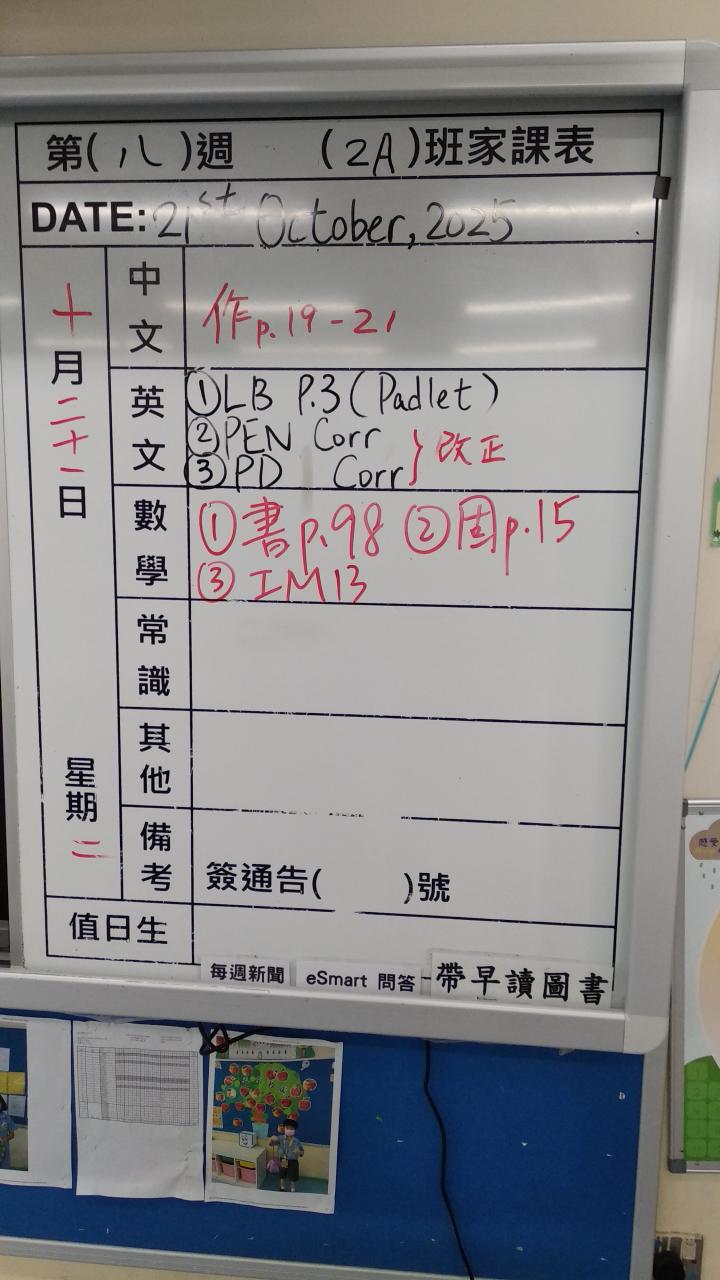 第(八)週 (2A)班家課表
DATE: 21st October, 2025
十月二十一日
星期二
中文
作p.19-21
英文
①LB P.3(Padlet)
②PEN Corr
③PD Corr
}改正
數學
①書p.98 ②固p.15
③IM13
常識
其他
備考
簽通告( )號
值日生
每週新聞 eSmart 問答 帶早讀圖書
感受